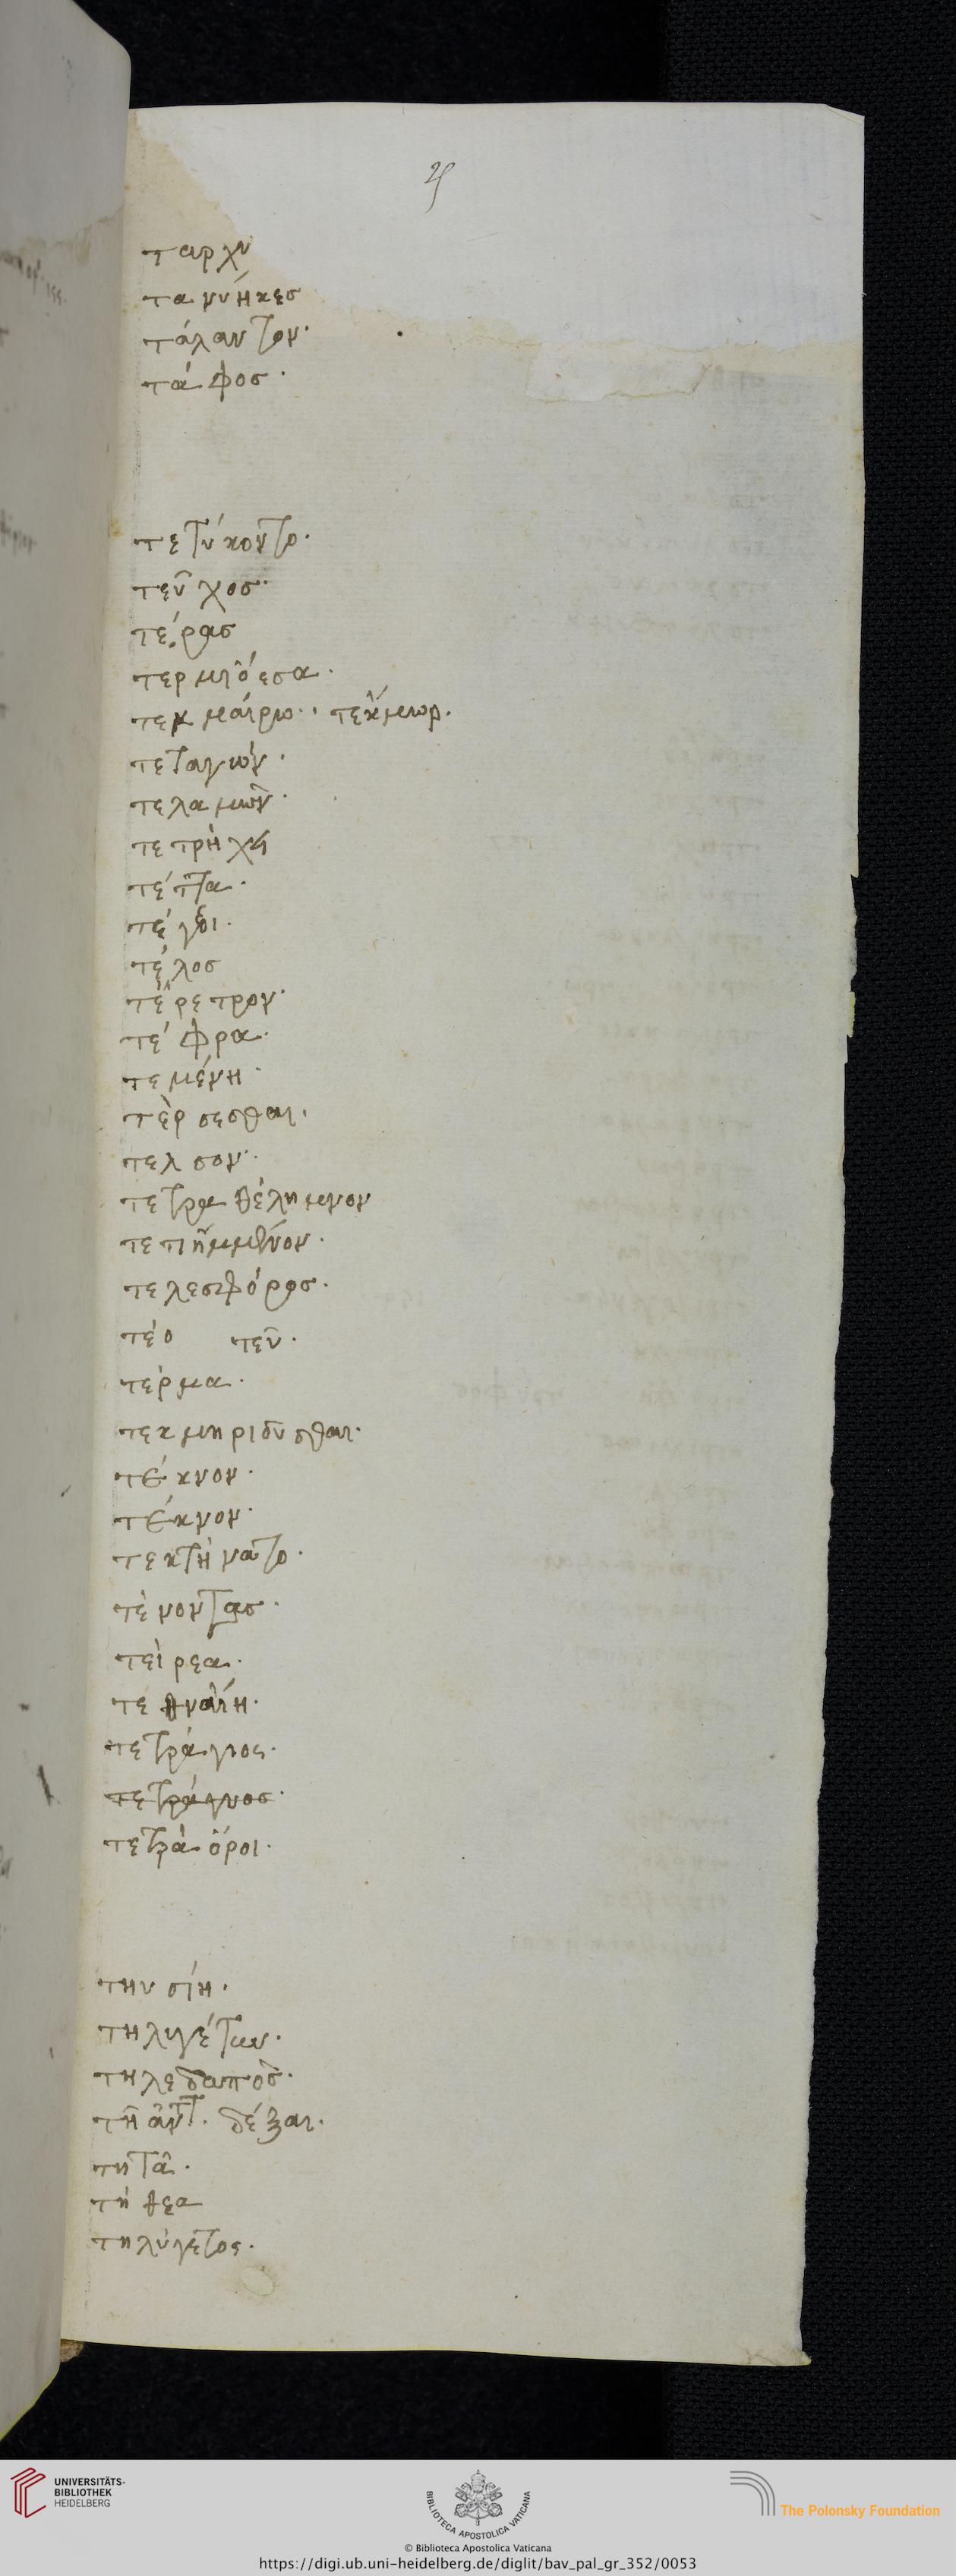 25
ταρχυ
τανυήκεσ
τάλαντον·
τάφοσ·
τετύκοντο·
τεῦχοσ·
τέρασ
τερμιόεσα·
τεκμαίρω·, τέκμωρ·
τεταγών·
τελαμών·
τετρήχει
τέττα·
τέλοσ
τέρετρον·
τέφρα·
τεμένη·
τέρσεσθαι·
τελσον·
τετραθέλημνον
τελεσφόροσ·
τέο τεῦ·
τέρμα·
τεκμηριοῦσθαι·
τέκνον·
τέκνον·
τεκτήνατο·
τένοντασ·
τείρεα·
τεθναίη·
τετράγυος·
τετράγυοσ·
τετράοροι·
τηυσίη·
τηλυγέτων·
τηλεδαποσ·
τῆ ἀντ· δέξαι·
τητᾶ·
τήθεα
τηλύγετος·
UNIVERSITÄTS-
BIBLIOTHEK
HEIDELBERG
BIBLIOTECA APOSTOLICA VATICANA
The Polonsky Foundation
© Biblioteca Apostolica Vaticana
https://digi.ub.uni-heidelberg.de/diglit/bav_pal_gr_352/0053